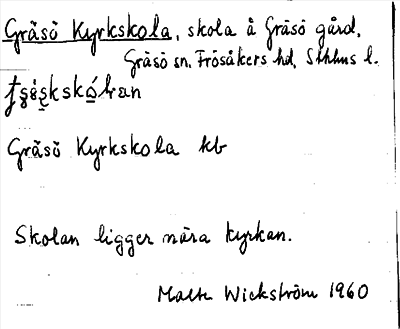 Gräsö Kyrkskola, skola å Gräsö gård,
Gräsö sn. Frösåkers hd, Sthlms l.
Gräsö Kyrkskola kb
Skolan ligger nära kyrkan.
Malte Wickström 1960